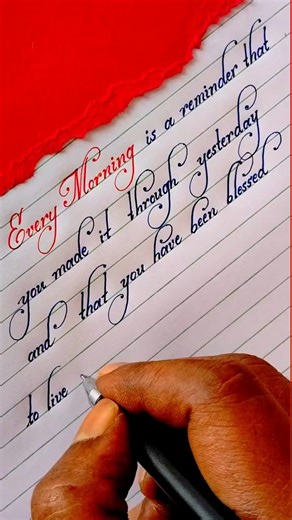 Every Morning is a reminder that
you made it through yesterday
and that you have been blessed
to live